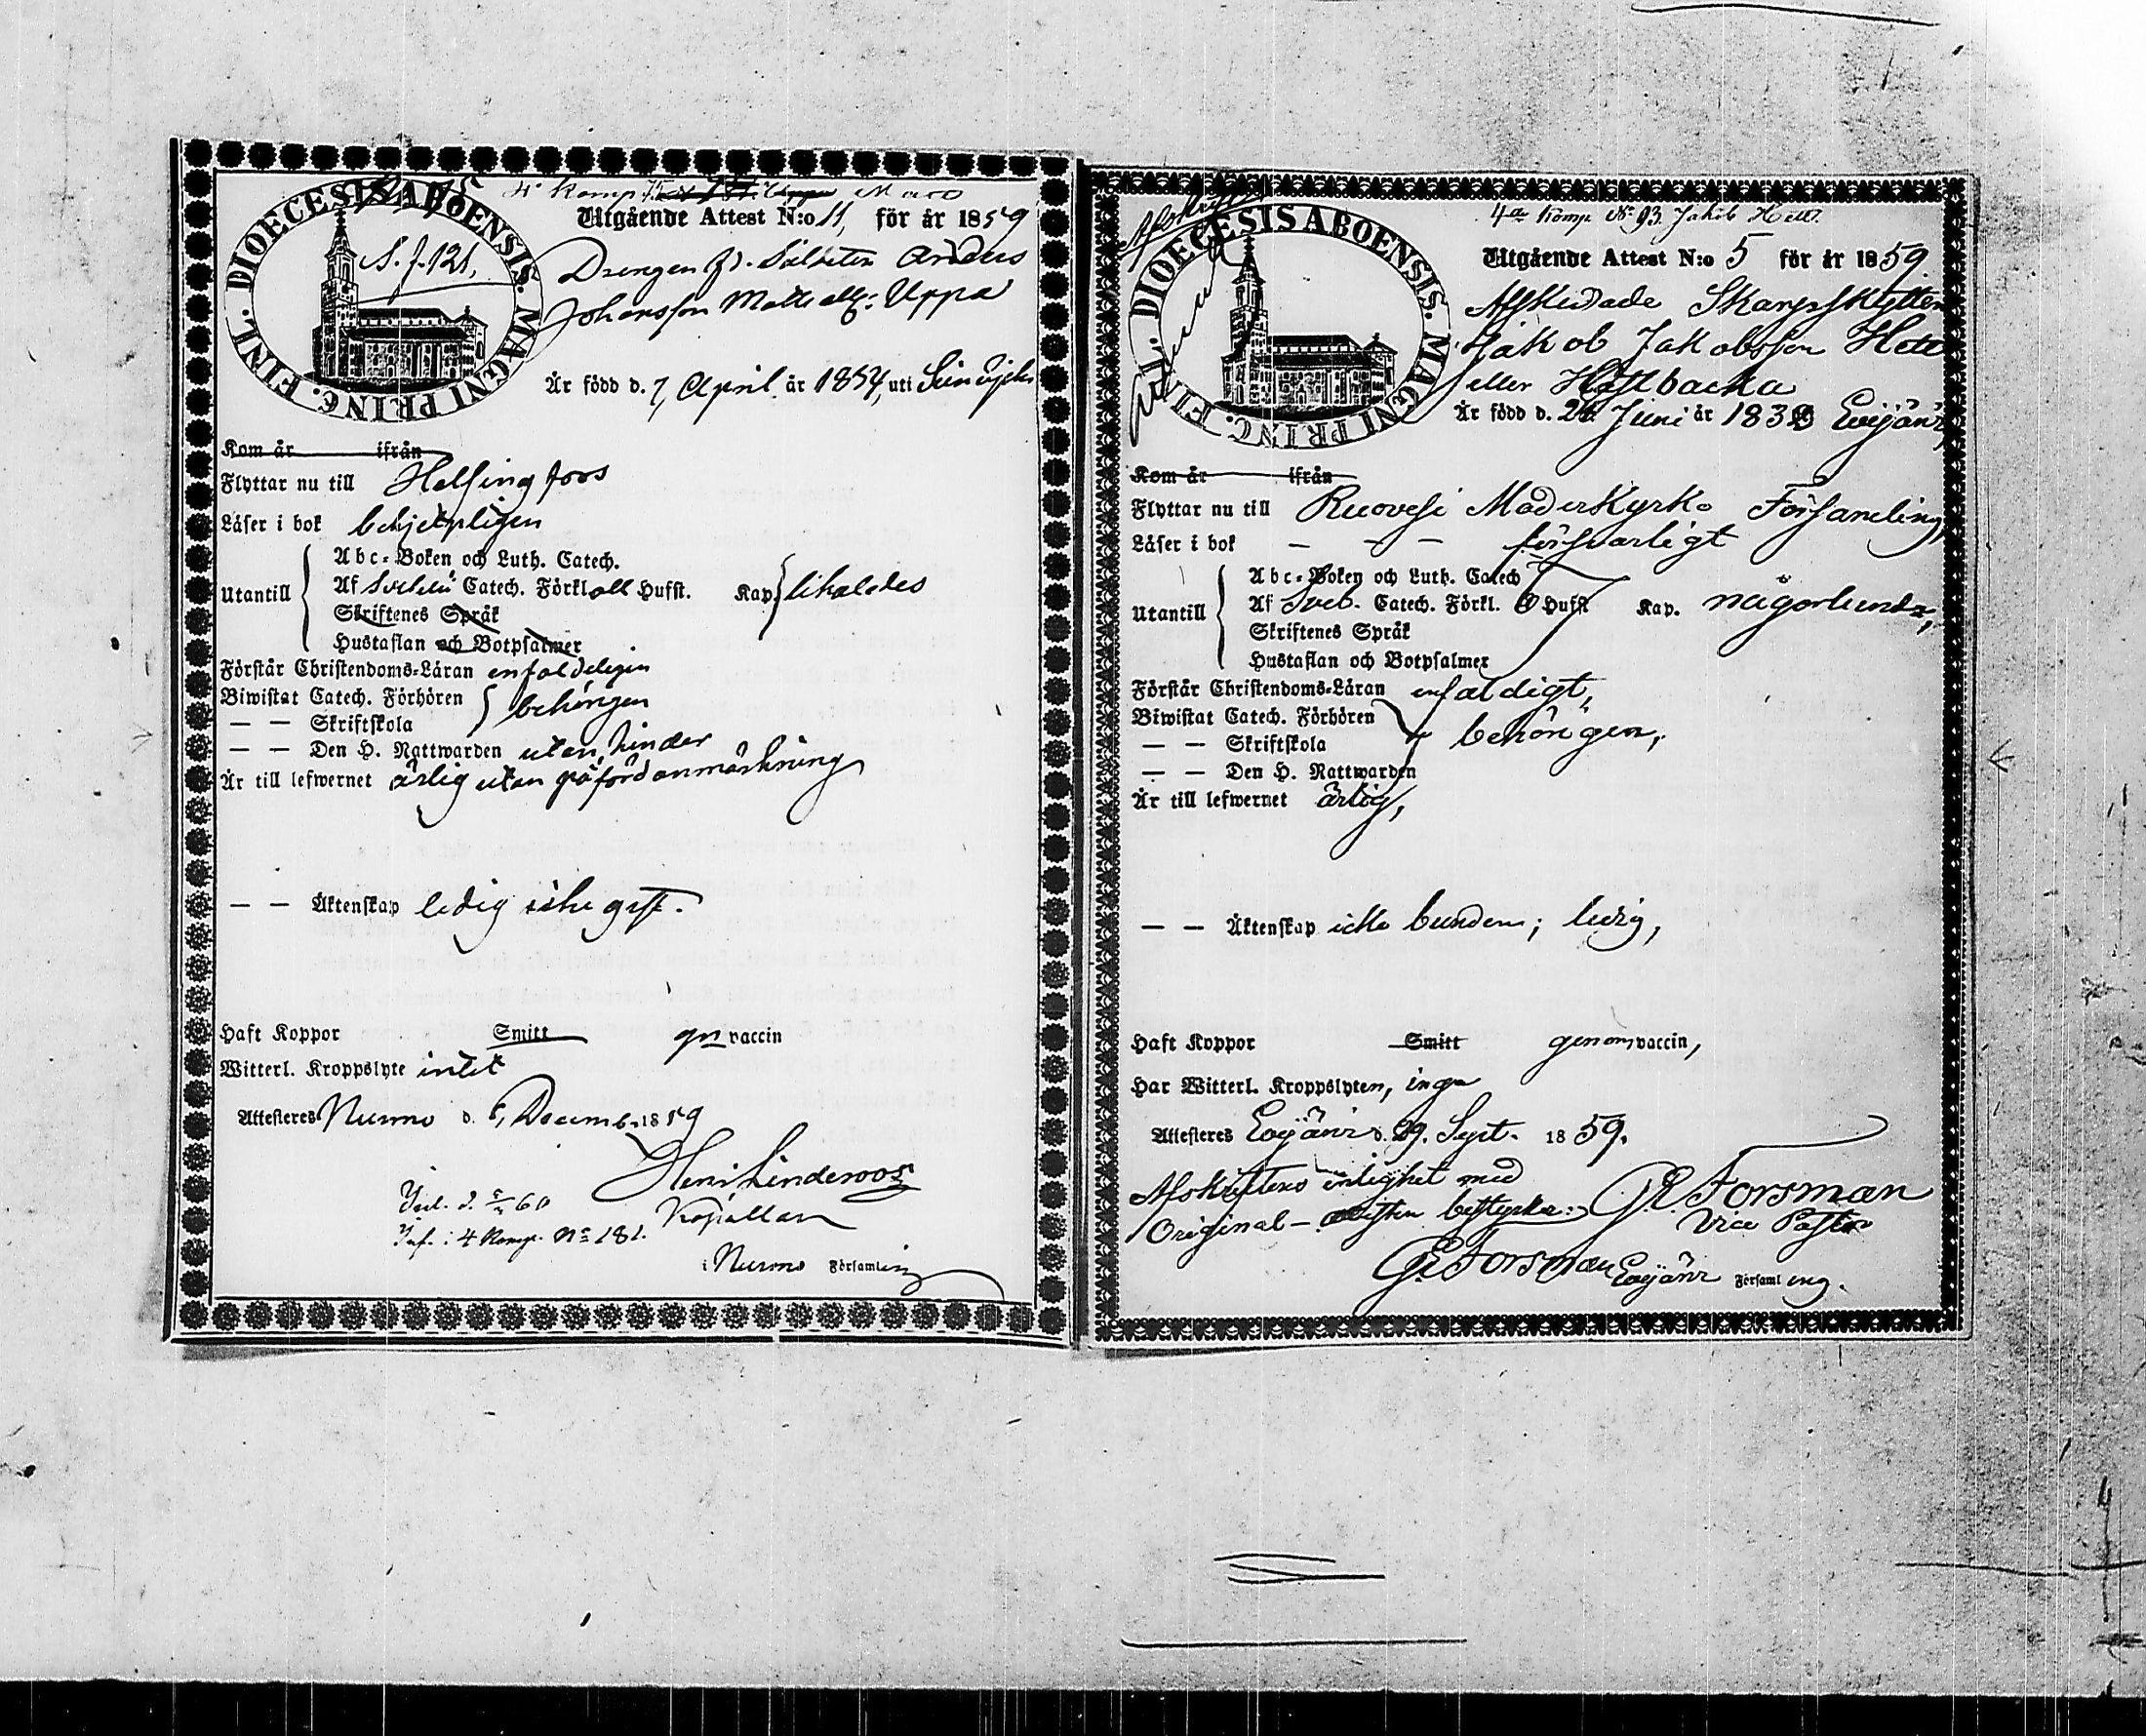 DIOECESIS ABOENSIS. MAGNI PRINC. FINL.
S. f. 121,
4e Komp.
Utgående Attest N:o 11, för år 1859
Drengen Soldaten Anders
Johansson Matts all: Uppa
Är född d. 7, April är 1834, uti
Kom år ifrån
Flyttar nu till Helsingfors
Läser i bok behjelpligen
Utantill
Abc-Boken och Luth. Catech.
Af Svebelii Catech. Förkl. all Husst. Kap. likaledes
Skriftenes Språk
Hustaflan och Botpsalmer
Förstår Christendoms-Läran enfaldeligen
Biwistat Catech. Förhören
— — Skriftskola behörigen
— — Den H. Nattwarden utan hinder
Är till lefwernet ärlig utan påförd anmärkning
— — Äktenskap ledig icke gift.
Haft Koppor Smitt gn vaccin
Witterl. Kroppslyte intet
Attesteras Nurmo d. 5, Decemb. 1859
Hen: Linderoos
Kapellan
Inf. i 4 Komp. No 181.
i Nurmo Församling
Afskrift
DIOECESIS ABOENSIS. MAGNI PRINC. FINL.
4de Komp. No 93. Jakob Hett.
Utgående Attest N:o 5 för år 1859.
Afskedade Skarpskytten
Jakob Jakobsson Hett
eller Hattbacka
Är född d. 26. Juni är 183 Evijärvi,
Kom år ifrån
Flyttar nu till Ruovesi Moderkyrko Församling,
Läser i bok — — — försvarligt
Utantill
Abc-Boken och Luth. Catech
Af Sveb. Catech. Förkl. 6 Husst Kap. någorlunda,
Skriftenes Språk
Hustaflan och Botpsalmer
Förstår Christendoms-Läran enfaldigt,
Biwistat Catech. Förhören
— — Skriftskola behörigen,
— — Den H. Nattwarden
Är till lefwernet ärlig,
— — Äktenskap icke bunden; ledig,
Haft Koppor Smitt genom vaccin,
Har Witterl. Kroppslyten, inga
Attesteras Evijärvi d. 29. Sept. 1859.
Afskriftens enlighet med
Original- bestyrker: G. E. Forsman
Vice Pastor
G. E. Forsman Evijärvi Församling.